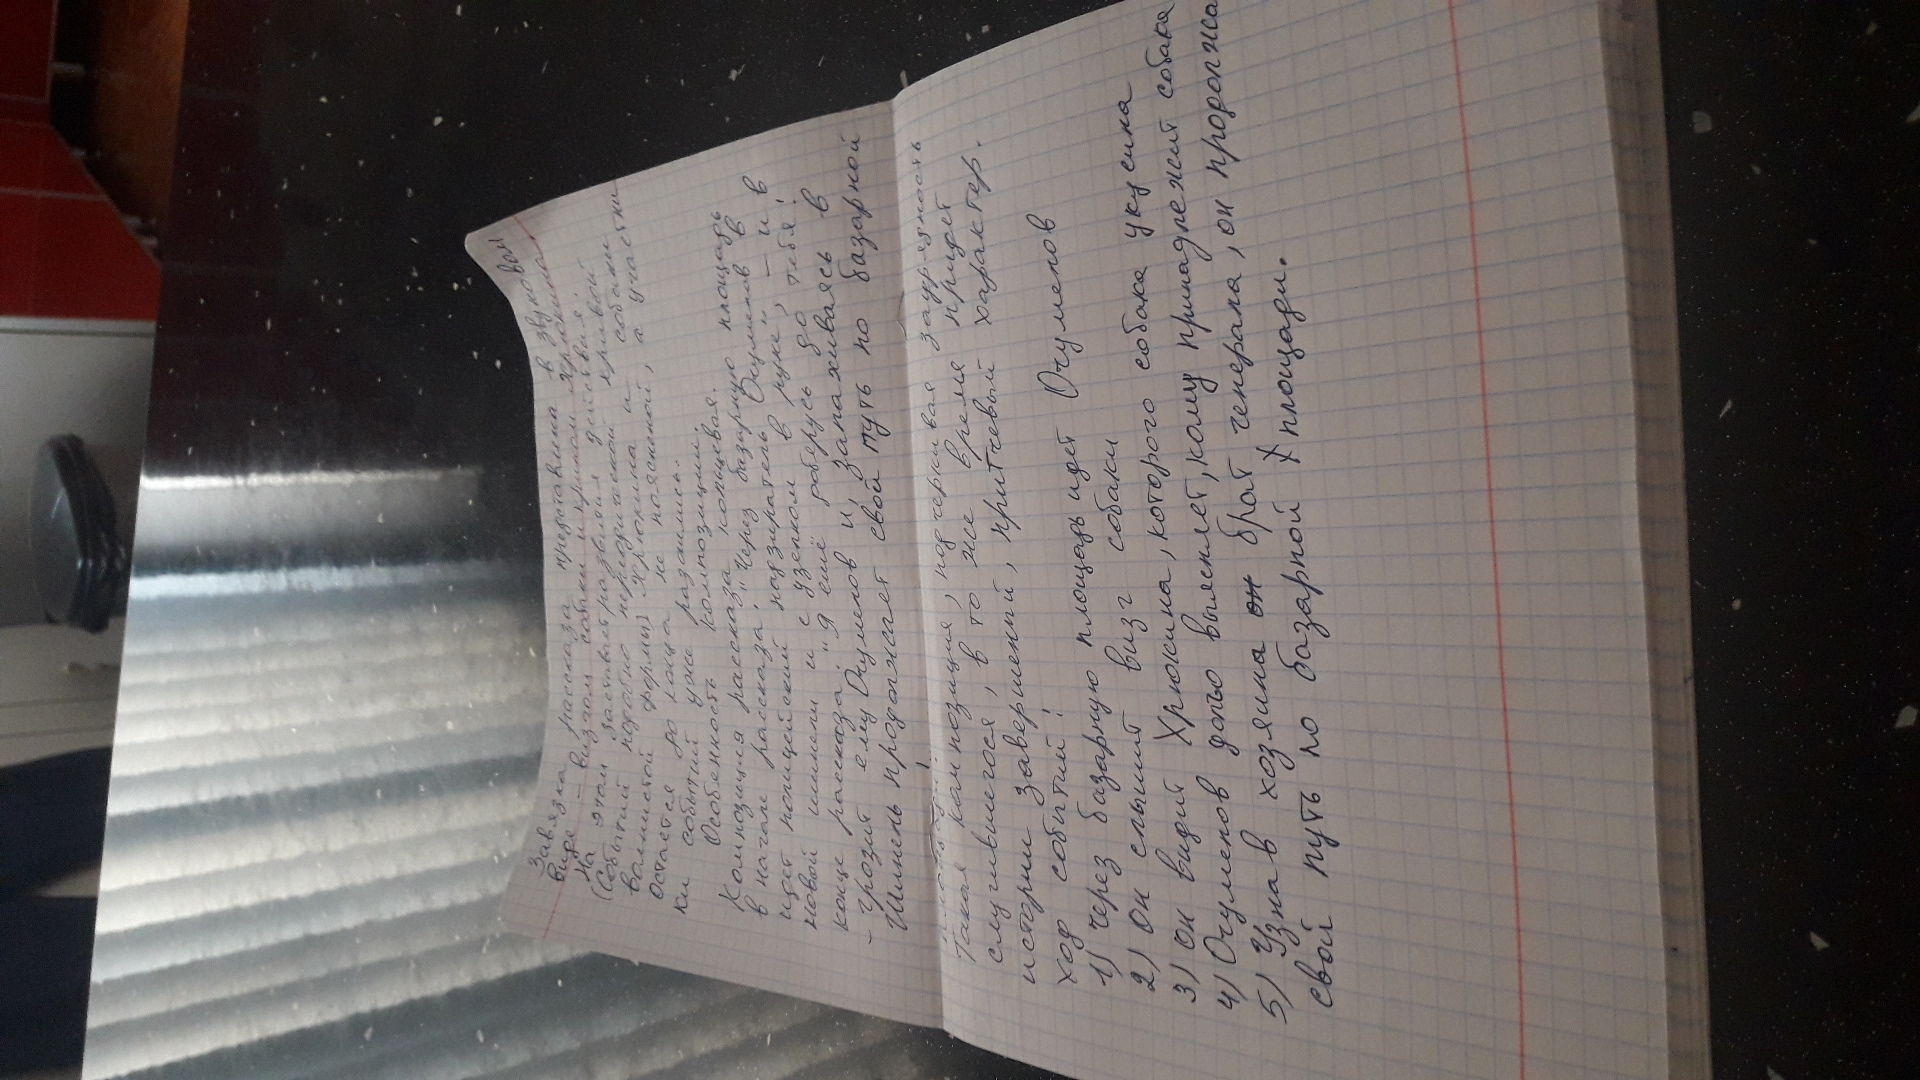 Завязка рассказа представлена в звуковом
виде – визгом собаки и криком Хрюкина.
На этом застывает развития действия.
(События подобно перекатной кривой
волнистой формы) Хрюкина и собаки
остается до конца не поясненной, а участни
ки событий уже разошлись.
Особенность композиции.
Композиция рассказа кольцевая.
в начале рассказа: "Через базарную площадь
идет полицейский надзиратель Очумелов в
новой шинели и с узелком в руке" – и в
конце рассказа: "Я ещё доберусь до тебя!
– грозит ему Очумелов и, запахиваясь в
шинель продолжает свой путь по базарной
Такая композиция, подчеркивая заурядность
случившегося, в то же время придет
истории завершенный, притчевый характер.
ход событий:
1) Через базарную площадь идет Очумелов
2) Он слышит визг собаки
3) Он видит Хрюкина, которого собака укусила
4) Очумелов долго выясняет, кому принадлежит собака
5) Узнав хозяина он брат генерала, он продолжа
свой путь по базарной площади.